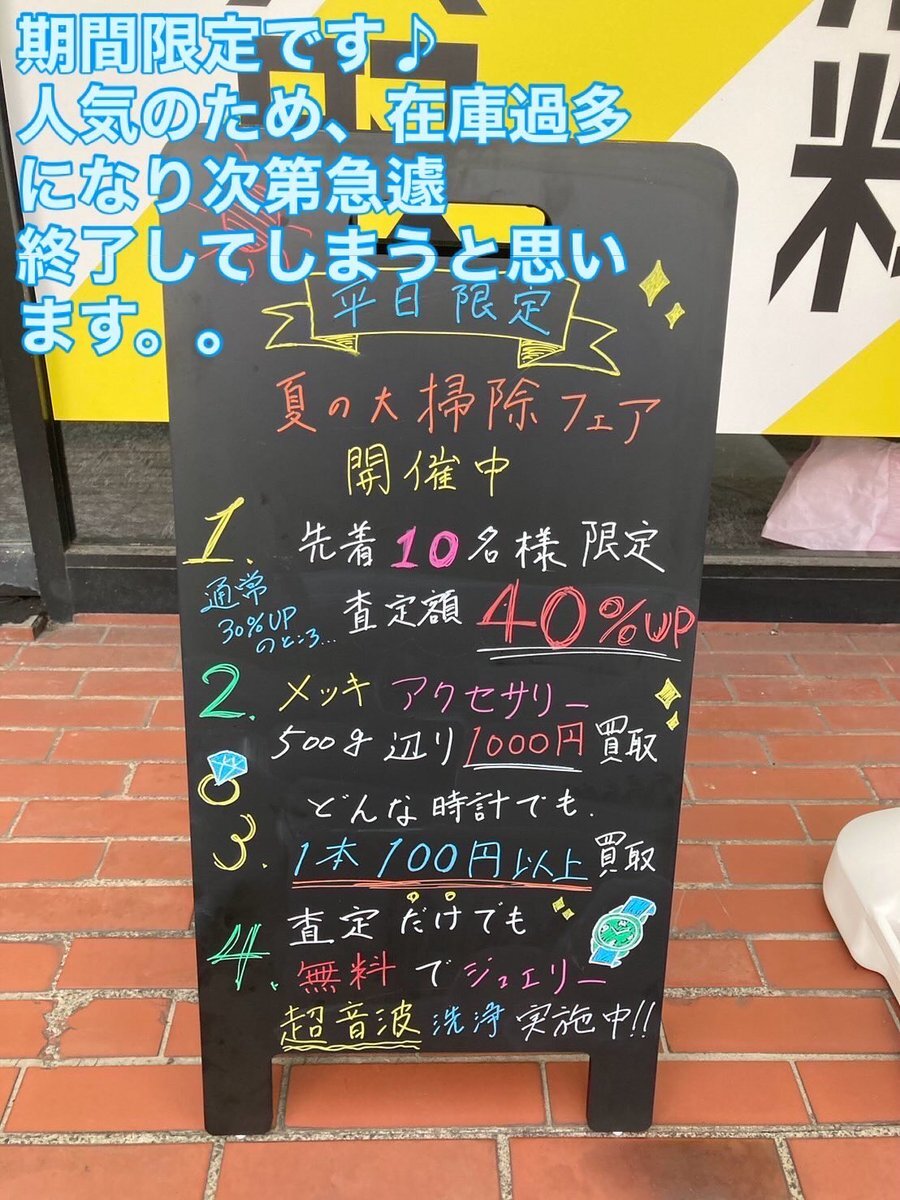 期間限定です♪
人気のため、在庫過多
になり次第急遽
終了してしまうと思い
ます。。
料
平日限定
夏の大掃除フェア
開催中
1. 先着10名様限定
通常
30%UP
のところ...
査定額 40%UP
2. メッキ アクセサリー
500g辺り1000円買取
3. どんな時計でも.
1本100円以上買取
4. 査定だけでも
無料でジュエリー
超音波洗浄実施中!!